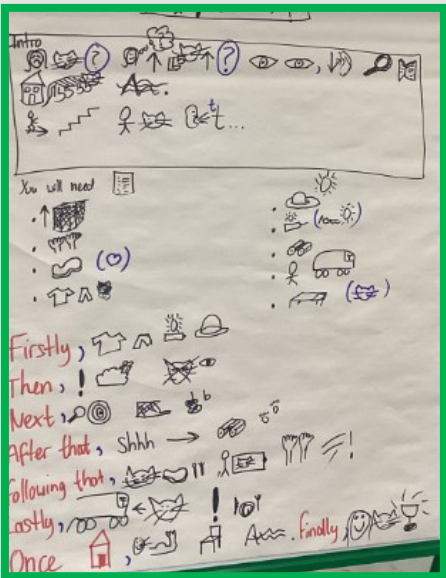 Intro
? ?
t t...
You will need
Firstly,
Then, !
Next,
After that, Shhh
Following that, !
Lastly, !
Once , . Finally,